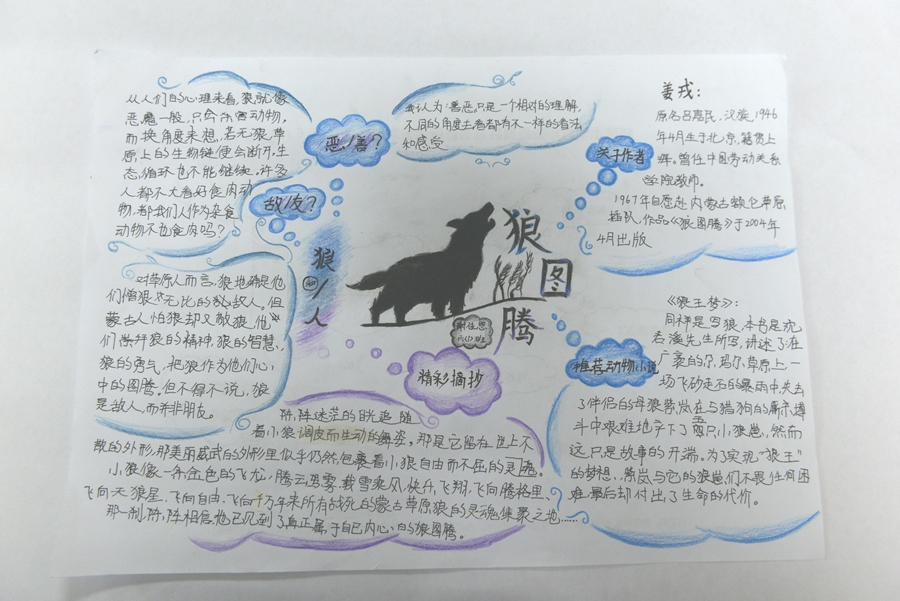 从人们的心理来看,狼就像
恶魔一般,只会杀害动物。
而换角度来想,若无狼,草
原上的生物链便会断开,生
态循环也不能继续。许多
人都不大看好食肉动
物,都我们人作为杂食
动物不也食肉吗?
恶/善?
我认为善恶,只是一个相对的理解,
不同的角度去看都有不一样的看法
和感受
敌/友?
对草原人而言,狼地确是他
们憎狠无比的敌人。但
蒙古人怕狼却又敬狼,他
们崇拜狼的精神,狼的智慧,
狼的勇气,把狼作为他们心
中的图腾。但不得不说,狼
是敌人,而并非朋友。
狼
和
/
人
狼
图
腾
关于作者
姜戎:
原名吕嘉民,汉族,1946
年4月生于北京,籍贯上
海。曾任中国劳动关系
学院教师。
1967年自愿赴内蒙古额仑草原
插队,作品《狼图腾》于2004年
4月出版
推荐动物小说
《狼王梦》:
同样是写狼,本书是沈
石溪先生所写,讲述了在
广袤的尕玛尔草原上,一
场飞砂走石的暴雨中,失去
了伴侣的母狼紫岚在与猎狗的搏
斗中艰难地产下了五只小狼崽,然而
这只是故事的开端。为了实现“狼王”
的梦想,紫岚与它的狼崽们不畏任何困
难,最后却付出了生命的代价。
精彩摘抄
陈阵迷茫的目光追随
着小狼调皮而生动的舞姿。那是它留在世上不
散的外形,那美丽威武的外形里似乎仍然包裹着小狼自由而不屈的灵魂。
小狼像一条金色的飞龙,腾云驾雾,载雪乘风,快乐飞翔,飞向腾格里、
飞向天狼星、飞向自由、飞向千万年来所有战死的蒙古草原狼的灵魂集聚之地……
那一刹,陈阵相信他已见到了真正属于自己内心的狼图腾。